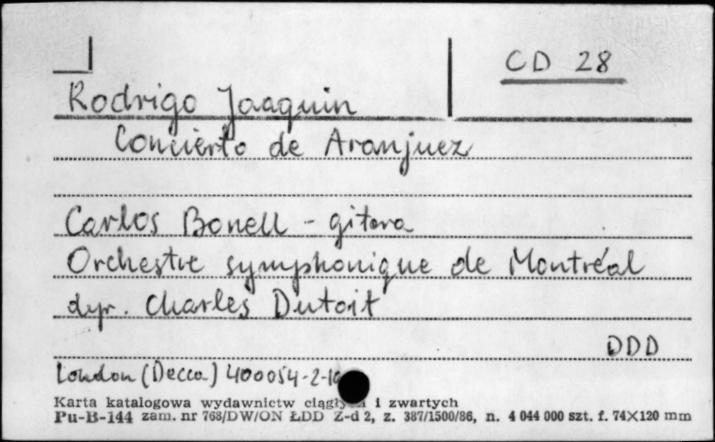 CD 28
Rodrigo Joaquin
Concierto de Aranjuez
Carlos Bonell - gitara
Orchestre symphonique de Montréal
dyr. Charles Dutoit
DDD
London (Decca) 400054-2-10
Karta katalogowa wydawnictw ciągłych i zwartych
Pu-B-144 zam. nr 768/DW/ON ŁDD Z-d 2, z. 387/1500/86, n. 4 044 000 szt. f. 74×120 mm